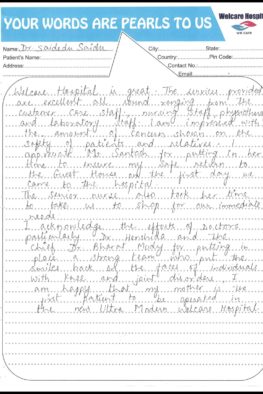 YOUR WORDS ARE PEARLS TO US
Welcare Hospital
WE CARE
Name: Dr Saidudu Saidu City: State:
Patient's Name: Country: Pin Code:
Address: Contact No.:
Email
Welcare Hospital is great. The services provided
are excellent all round ranging from the
customer care staff, nursing staff, physiotherapy
and laboratory staff. I am impressed with
the amount of concern shown on the
safety of patients and relatives. I
appreciate Mr Santosh for putting in her
time to ensure my safe return to
the Guest House on the first day we
came to the hospital.
The senior nurse also took her time
to take us to shop for our immediate
needs
I acknowledge the efforts of Doctors
particularly Dr. and the
Chief Dr Bharat Mody for putting in
place a strong team who put the
smiles back on the faces of individuals
with knee and joint disorders. I
am happy that my mother is the
first patient to be operated in
the new Ultra Modern Welcare Hospital